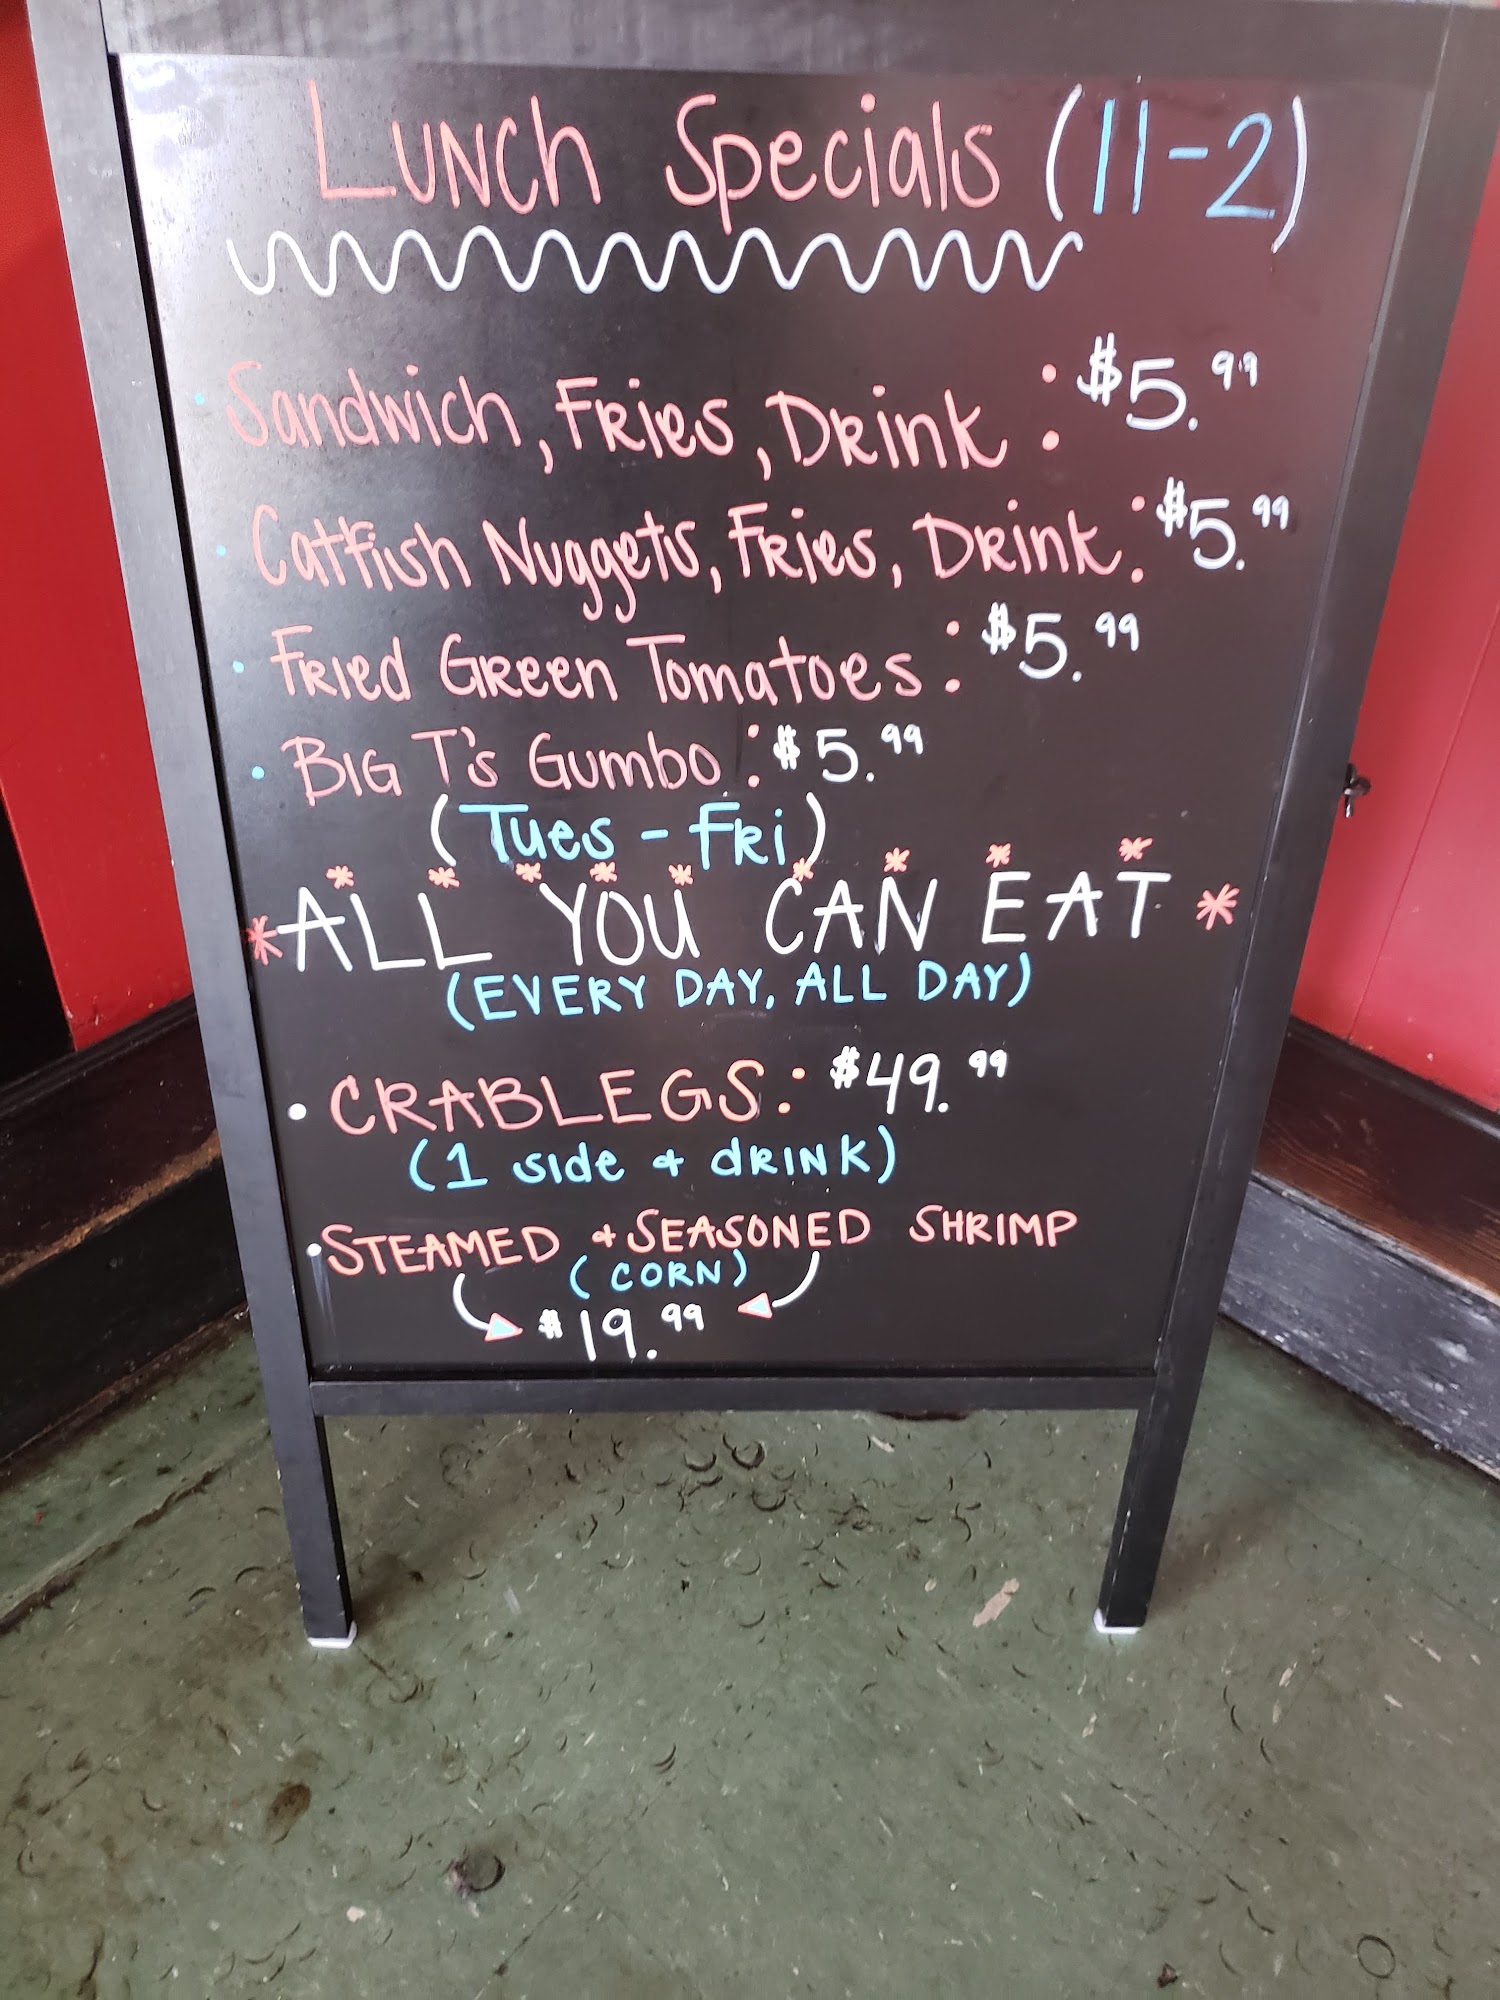 Lunch Specials (11-2)
Sandwich, Fries, Drink: $5.99
Catfish Nuggets, Fries, Drink: $5.99
Fried Green Tomatoes: $5.99
Big T's Gumbo: $5.99
(Tues - Fri)
*ALL YOU CAN EAT*
(EVERY DAY, ALL DAY)
• CRABLEGS: $49.99
(1 side & drink)
• STEAMED & SEASONED SHRIMP
(CORN)
$19.99